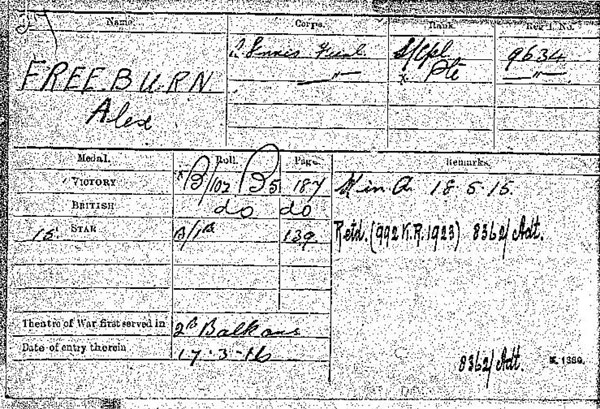 Name. Corps. Rank. Reg'l. No.
FREEBURN R. Innis Fusl L/Cpl 9634
Alex " x Pte "
Medal. Roll. Page. Remarks.
VICTORY x B/102 B5 187 K in A. 18.5.15.
BRITISH do do
15 STAR 139 Retd. (992 K.R. 1923) 8362/Adt.
Theatre of War first served in 2B Balkans
Date of entry therein 17.3.15
8362/Adt. K. 1380.